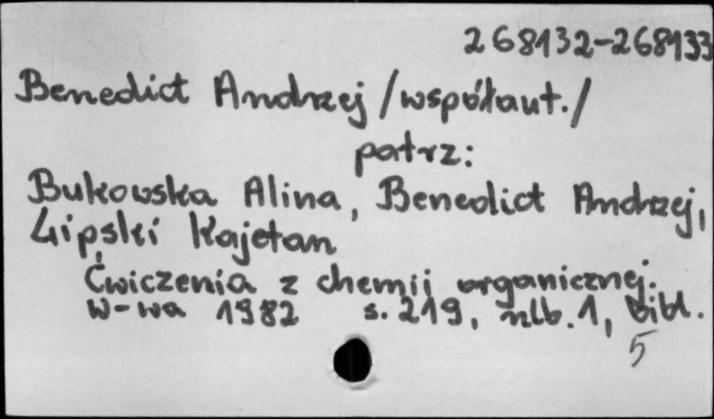 268132-268133
Benedict Andrzej /współaut./
patrz:
Bukowska Alina, Benedict Andrzej,
Lipski Kajetan
Ćwiczenia z chemii organicznej.
W-wa 1982 s. 219, nlb. 1, bibl.
5